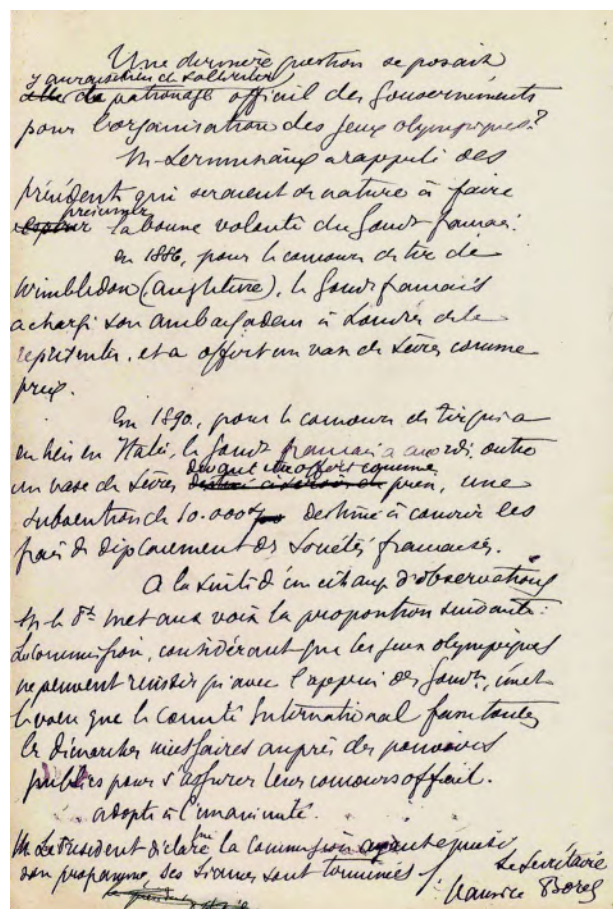 Une dernière question se posait
y aurait-il lieu de solliciter
le patronage officiel des Gouvernements
pour l'organisation des jeux olympiques?
M. Lermusiaux a rappelé des
précédents qui seraient de nature à faire
présumer
espérer la bonne volonté du Gouvt français.
en 1886, pour le concours de tir de
Wimbledon (angleterre), le Gouvt français
a chargé son ambassadeur à Londres de le
représenter, et a offert un vase de Sèvres comme
prix.
En 1890, pour le concours de tir qui a
eu lieu en Italie, le Gouvt français a accordé, outre
devant être offert comme
un vase de Sèvres prix, une
subvention de 10.000 f destinée à couvrir les
frais de déplacement des Sociétés françaises.
A la suite d'un échange d'observations
M. le Pt met aux voix la proposition suivante:
La Commission, considérant que les jeux olympiques
ne peuvent réussir qu'avec l'appui des Gouvts, émet
le voeu que le Comité International fasse toutes
les démarches nécessaires auprès des pouvoirs
publics pour s'assurer leur concours officiel.
adopté à l'unanimité.
M. Le Président déclare que la Commission ayant épuisé
son programme, ses séances sont terminées
Le Secrétaire
Maurice Borel